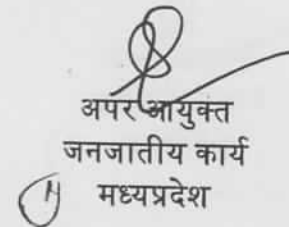 अपर आयुक्त
जनजातीय कार्य
मध्यप्रदेश